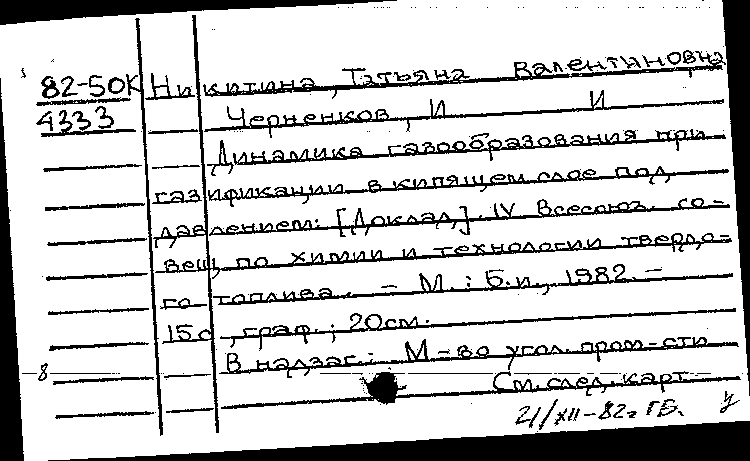 82-50К Никитина, Татьяна Валентиновна
4333 Черненков, И И
Динамика газообразования при
газификации в кипящем слое под
давлением: [Доклад]. IV Всесоюз. со-
вещ. по химии и технологии твердо-
го топлива. – М.: Б.и., 1982. –
15с., граф.; 20см.
В надзаг.: М-во угол. пром-сти
8 См. след. карт
21/XII-82г ГБ. У